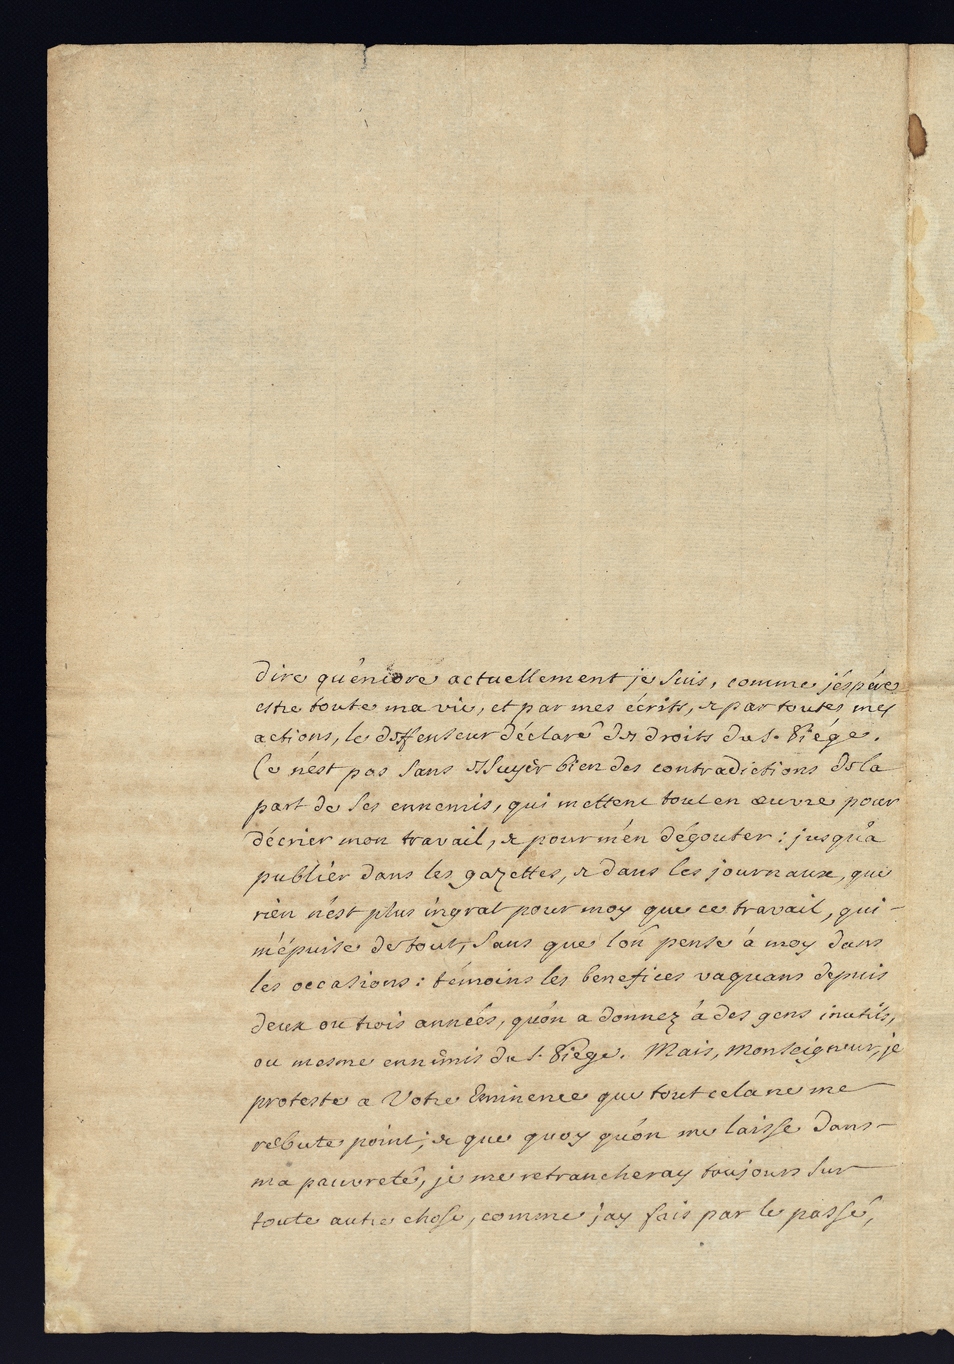 dire qu'encore actuellement je suis, comme j'éspére
estre toute ma vie, et par mes écrits, & par toutes mes
actions, le deffenseur déclaré des droits du S. Siége.
Ce n'est pas sans essuyèr bien des contradictions de la
part de ses ennemis, qui mettent tout en œuvre pour
décrier mon travail, & pour m'én dégouter: jusqu'à
publiér dans les gazettes, & dans les journaux, que
rien n'ést plus ingrat pour moy que ce travail, qui
m'épuise de tout, sans que l'ón pense á moy dans
les occasions: témoins les benefices vaquans depuis
deux ou trois années, qu'ón a donnez á des gens inutils,
ou mesme ennemis du S. Siége. Mais, Monseigneur, je
proteste a Votre Eminence que tout cela ne me
rebute point; & que quoy qu'ón me laisse dans
ma pauvreté, je me retrancheray toujours sur
toute autre chose, comme j'ay fais par le passé,